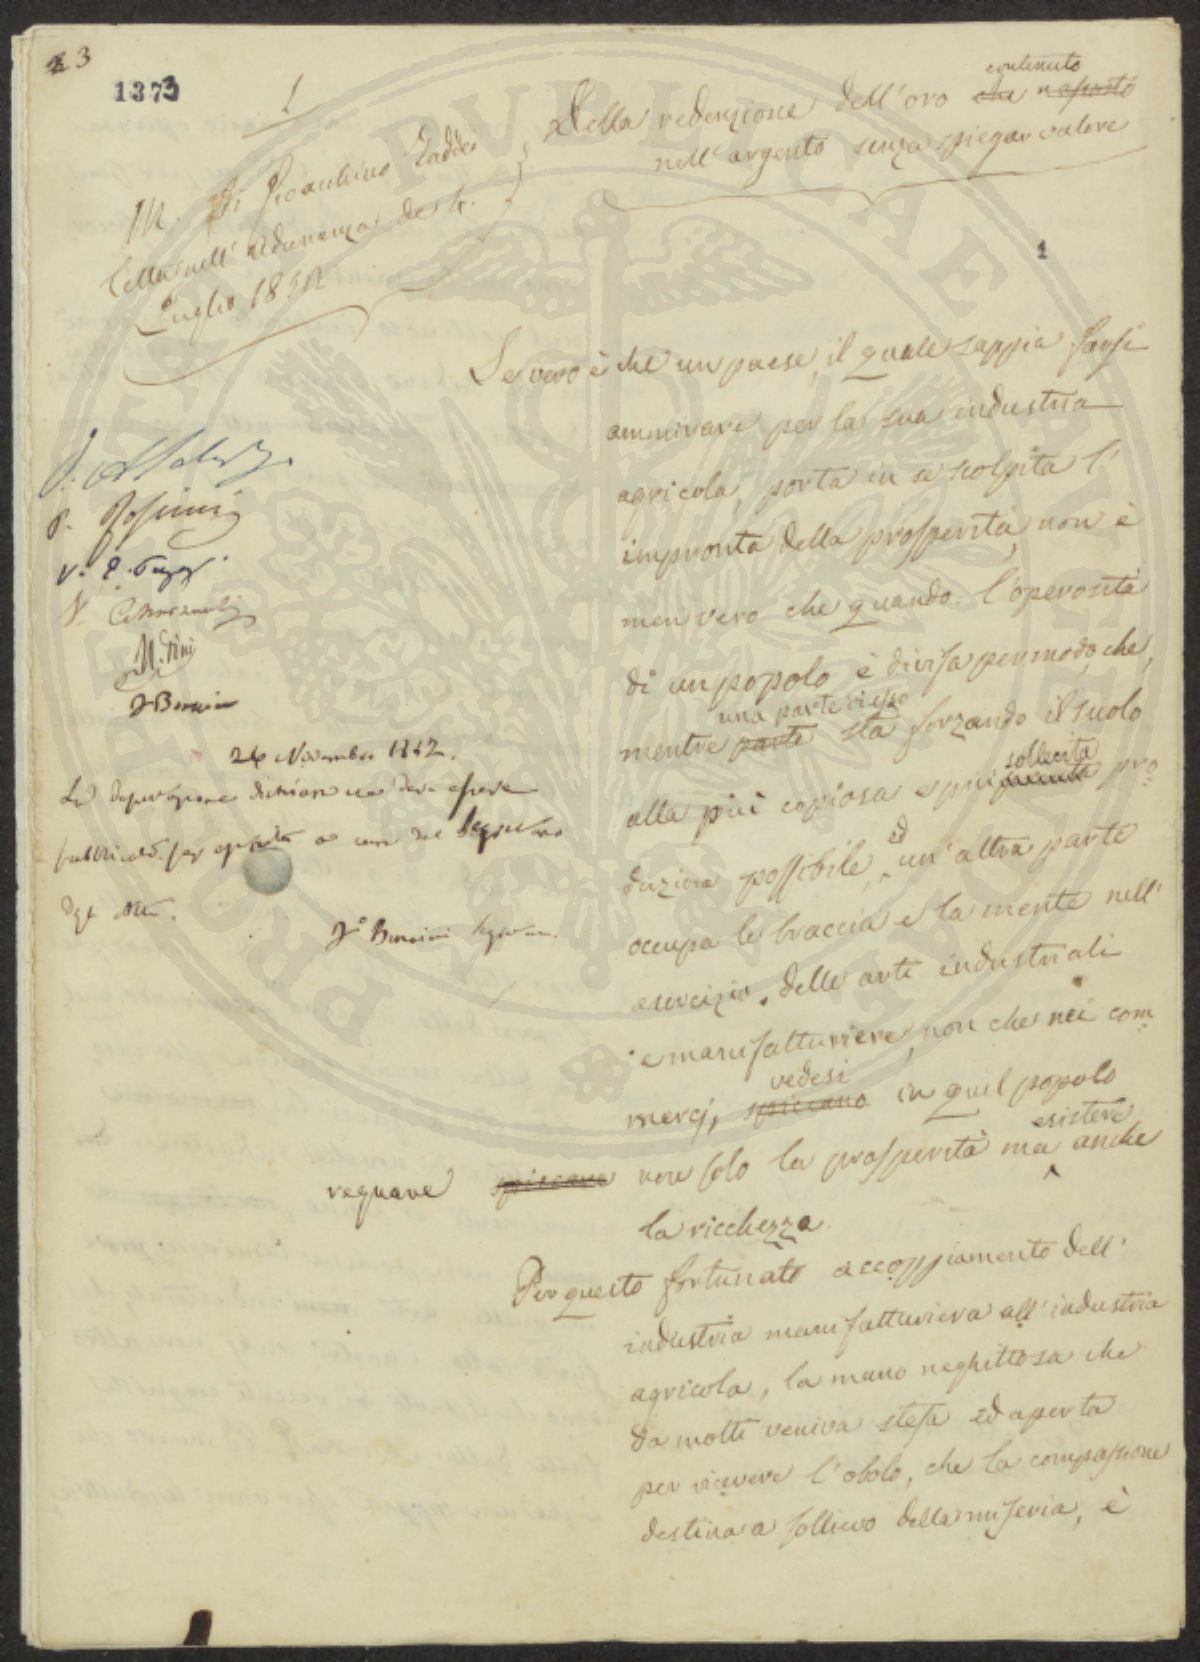 23
1373
1
Della redenzione dell'oro che nascosto
contenuto
nell'argento senza spiegar valore
M. Di Gioacchino Taddei
Letta nell'Adunanza de 4.
Luglio 1852
1
Se vero è che un paese, il quale sappia farsi
ammirare per la sua industria
agricola, porta in se scolpita l'
impronta della prosperità, non è
men vero che quando l'operosità
di un popolo è divisa per modo, che,
una parte
mentre parte sta forzando il suolo
sollecita
alla più copiosa e più pro
duzione possibile, ed un'altra parte
occupa le braccia e la mente nell'
esercizio delle arti industriali
e manufatturiere, non che nei com
vedesi
merci, spiccano in quel popolo
esistere
regnare spiccare non solo la prosperità ma anche
la ricchezza.
Per questo fortunato accoppiamento dell'
industria manufatturiera all'industria
agricola, la mano neghittosa che
da molti veniva stesa ed aperta
per ricevere l'obolo, che la compassione
destina a sollievo della miseria, è
P. Rosini
24 Novembre 1852.
La deputazione è di non deve essere
pubblicata per a cura del Segretario
degli Atti.